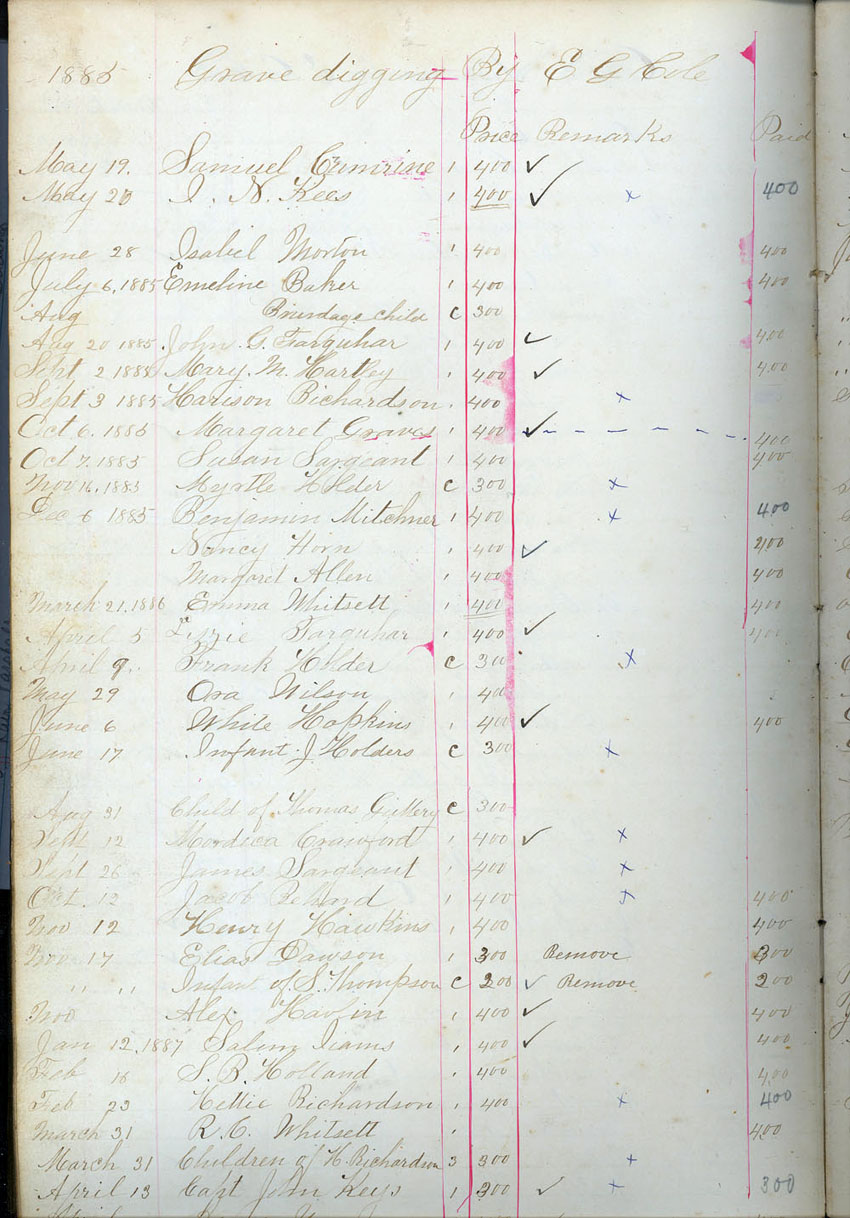 1885 Grave digging By E G Cole
Price Remarks Paid
May 19. Samuel Cumrine 1 400 ✓
May 20 I. N. Kees 1 400 ✓ x 400
June 28 Isabel Morton 1 400 400
July 6, 1885 Emeline Baker 1 400 400
Aug child c 300
Aug 20 1885. John G. Farquhar 1 400 ✓ 400
Sept 2 1885 Mary. M. Hartley 1 400 ✓ 400
Sept 3 1885 Harison Richardson 400 x
Oct 6. 1885 Margaret Graves 1 400 ✓ 400
Oct 7. 1885 Susan Sargeant 1 400 400
Nov 16, 1885 Myrtle Holder c 300 x
Dec 6 1885 Benjamin Mitchner 1 400 x 400
Nancy Horn 1 400 ✓ 400
Margaret Allen 1 400 400
March 21, 1886 Emma Whitsett 1 400 400
April 5 Lizzie Farquhar 1 400 ✓ 400
April 9. Frank Holder c 300 x
May 29 Ora Wilson 1 400
June 6 White Hopkins 1 400 ✓ 400
June 17 Infant J. Holders c 300 x
Aug 31 Child of Thomas c 300
Sept 12 Mordica Crawford 1 400 ✓ x
Sept 26 James Sargeant 1 400 x
Oct. 12 Jacob 1 400 x 400
Nov 12 Henry Hawkins 1 400 400
Nov 17 Elias Dawson 1 300 Remove 300
" " Infant of S. Thompson c 200 ✓ Remove 200
Nov Alex 1 400 ✓ 400
Jan 12, 1887 Salem 1 400 ✓ 400
Feb 16 S. B. Holland 400 400
Feb 23 Hettie Richardson 1 400 x 400
March 31 R. C. Whitsett 1 400
March 31 Children of H. Richardson 3 300 x
April 13 Capt John Keys 1 300 ✓ x 300